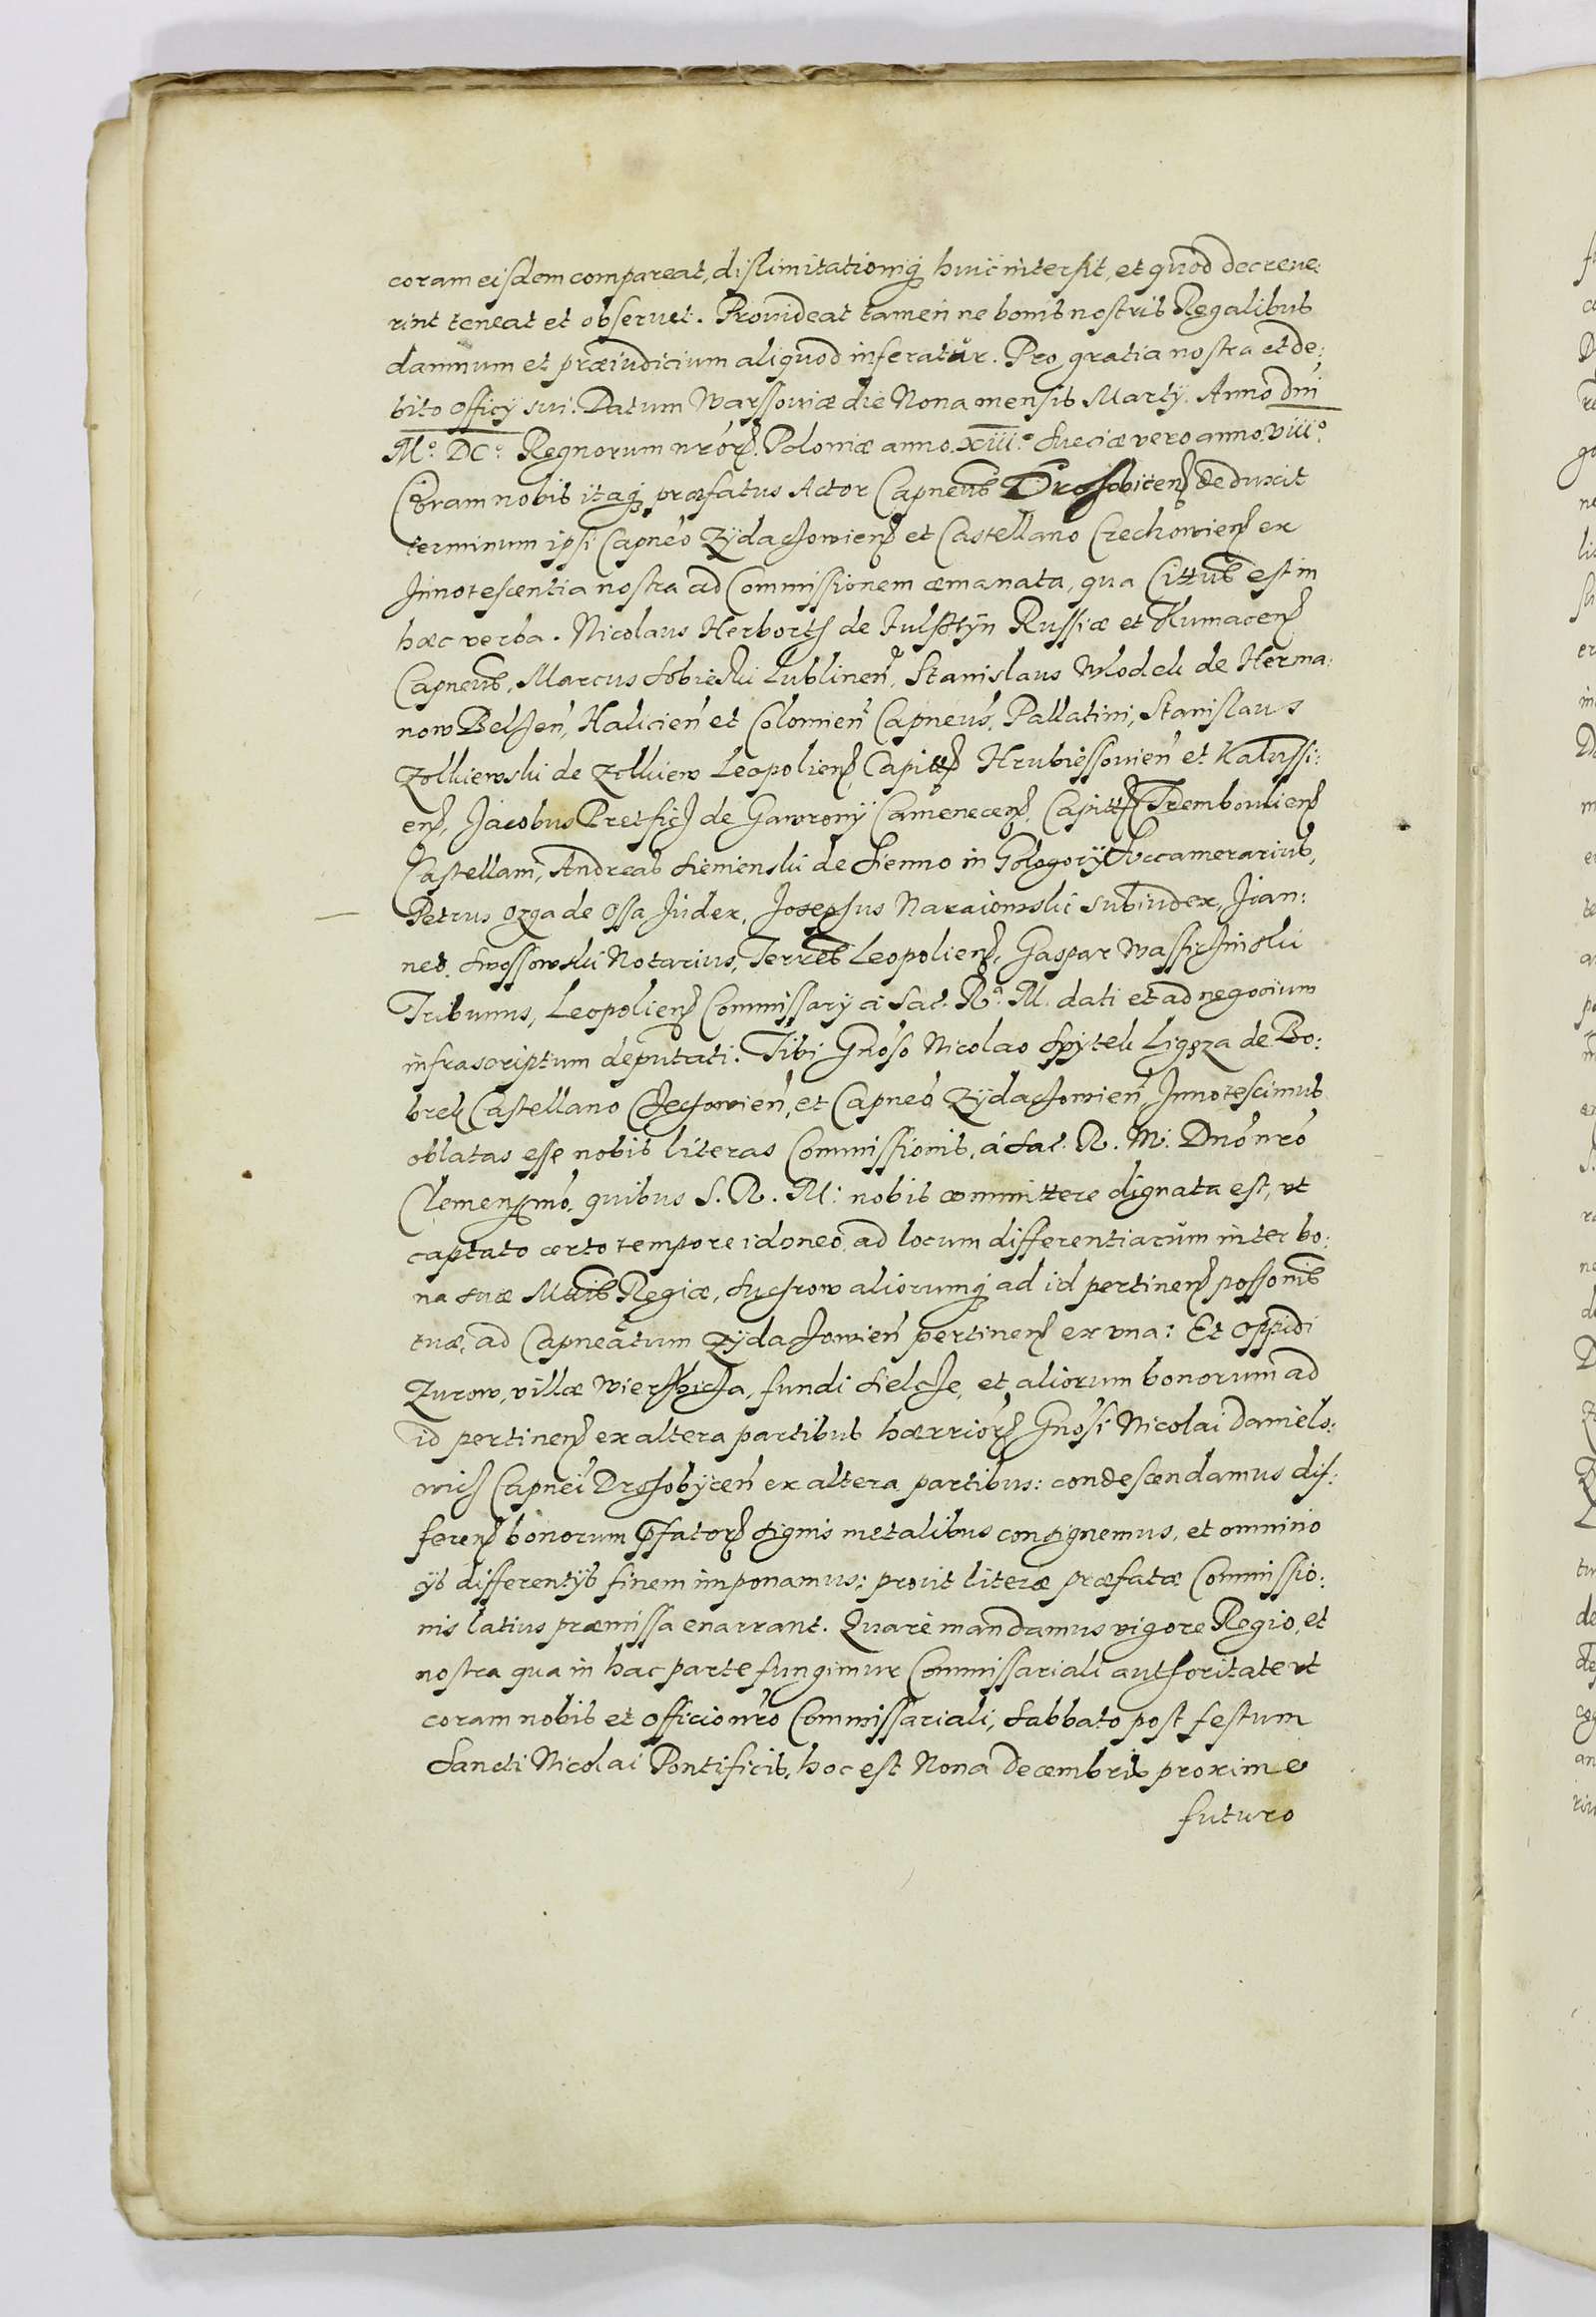 coram eisdem compareat, dislimitationiq; huic intersit, et quod decreue:
rint teneat et obseruet. Prouideat tamen ne bonis nostris Regalibus
damnum et præiudicium aliquod inferatur. Pro gratia nostra et de:
bito officÿ sui. Datum Warssouiæ die Nona mensis Martÿ. Anno Dni
Mº. DCº. Regnorum nrorꝝ. Poloniæ anno. XIIIº. Sueciæ vero anno. VIIIº.
Coram nobis itaq; præfatus Actor Capneus Drohobicenꝭ deduxit
terminum ipsi Capneo Zÿdachowienꝭ et Castellano Czechowienꝭ ex
Innotescentia nostra ad Commissionem æmanata, qua Cittus est in
hæc verba. Nicolaus Herborth de Fulsztÿn Russiæ et
Capneus, Marcus Sobieski Lublinen, Stanislaus Wlodek de Herma:
now Belzen, Halicien et Colomien Capneus, Pallatini, Stanislaus
Zolkiewski de Zolkiew Leopolienꝭ Capittꝭ Hrubiessouien et Kalussi:
enꝭ, Jacobus Pretficz de Gawronÿ Camenecenꝭ, Capittꝭ Trembowlienꝭ
Castellani, Andreas Siemienski de Sienno in Gologorÿ Succamerarius,
Petrus Ozga de Ossa Judex, Josephus Naraiowski subiudex, Joan:
nes Swossowski Notarius, Terres Leopolienꝭ, Gaspar
Tribunus, Leopolienꝭ Commissarÿ à Sac. Rª. M. dati et ad negocium
infrascriptum deputati. Tibi Gnoso Nicolao Spÿtek Ligęza de Bo:
brek Castellano Czechowien, et Capneo Zÿdachowien, Innotescimus
oblatas esse nobis literas Commissionis, à Sac. R. M. Dno nro
Clemenꝭmo, quibus S. R. M: nobis committere dignata est, vt
captato certo tempore idoneo, ad locum differentiarum inter bo:
na suæ Mttis Regiæ, Suchrow aliorumq; ad id pertinenꝭ possonis
tuæ, ad Capneatum Zÿdachowien pertinenꝭ ex vna: Et oppidi
Zurow, villæ Wierzbicza, fundi Sielcze, et aliorum bonorum ad
id pertinenꝭ ex altera partibus hærriorꝝ Gnosi Nicolai Danielo:
wicz Capnei Drohobÿcen ex altera partibus: condescendamus dif:
ferenꝭ bonorum pfatorꝝ signis metalibus consignemus, et omnino
ijs differentÿs finem imponamus: prout literæ præfatæ Commissio:
nis latius præmissa enarrant. Quare mandamus vigore Regio, et
nostra qua in hac parte fungimur Commissariali authoritate vt
coram nobis et officio nro Commissariali, Sabbato post festum
Sancti Nicolai Pontificis, hoc est Nona Decembris proxime
futuro